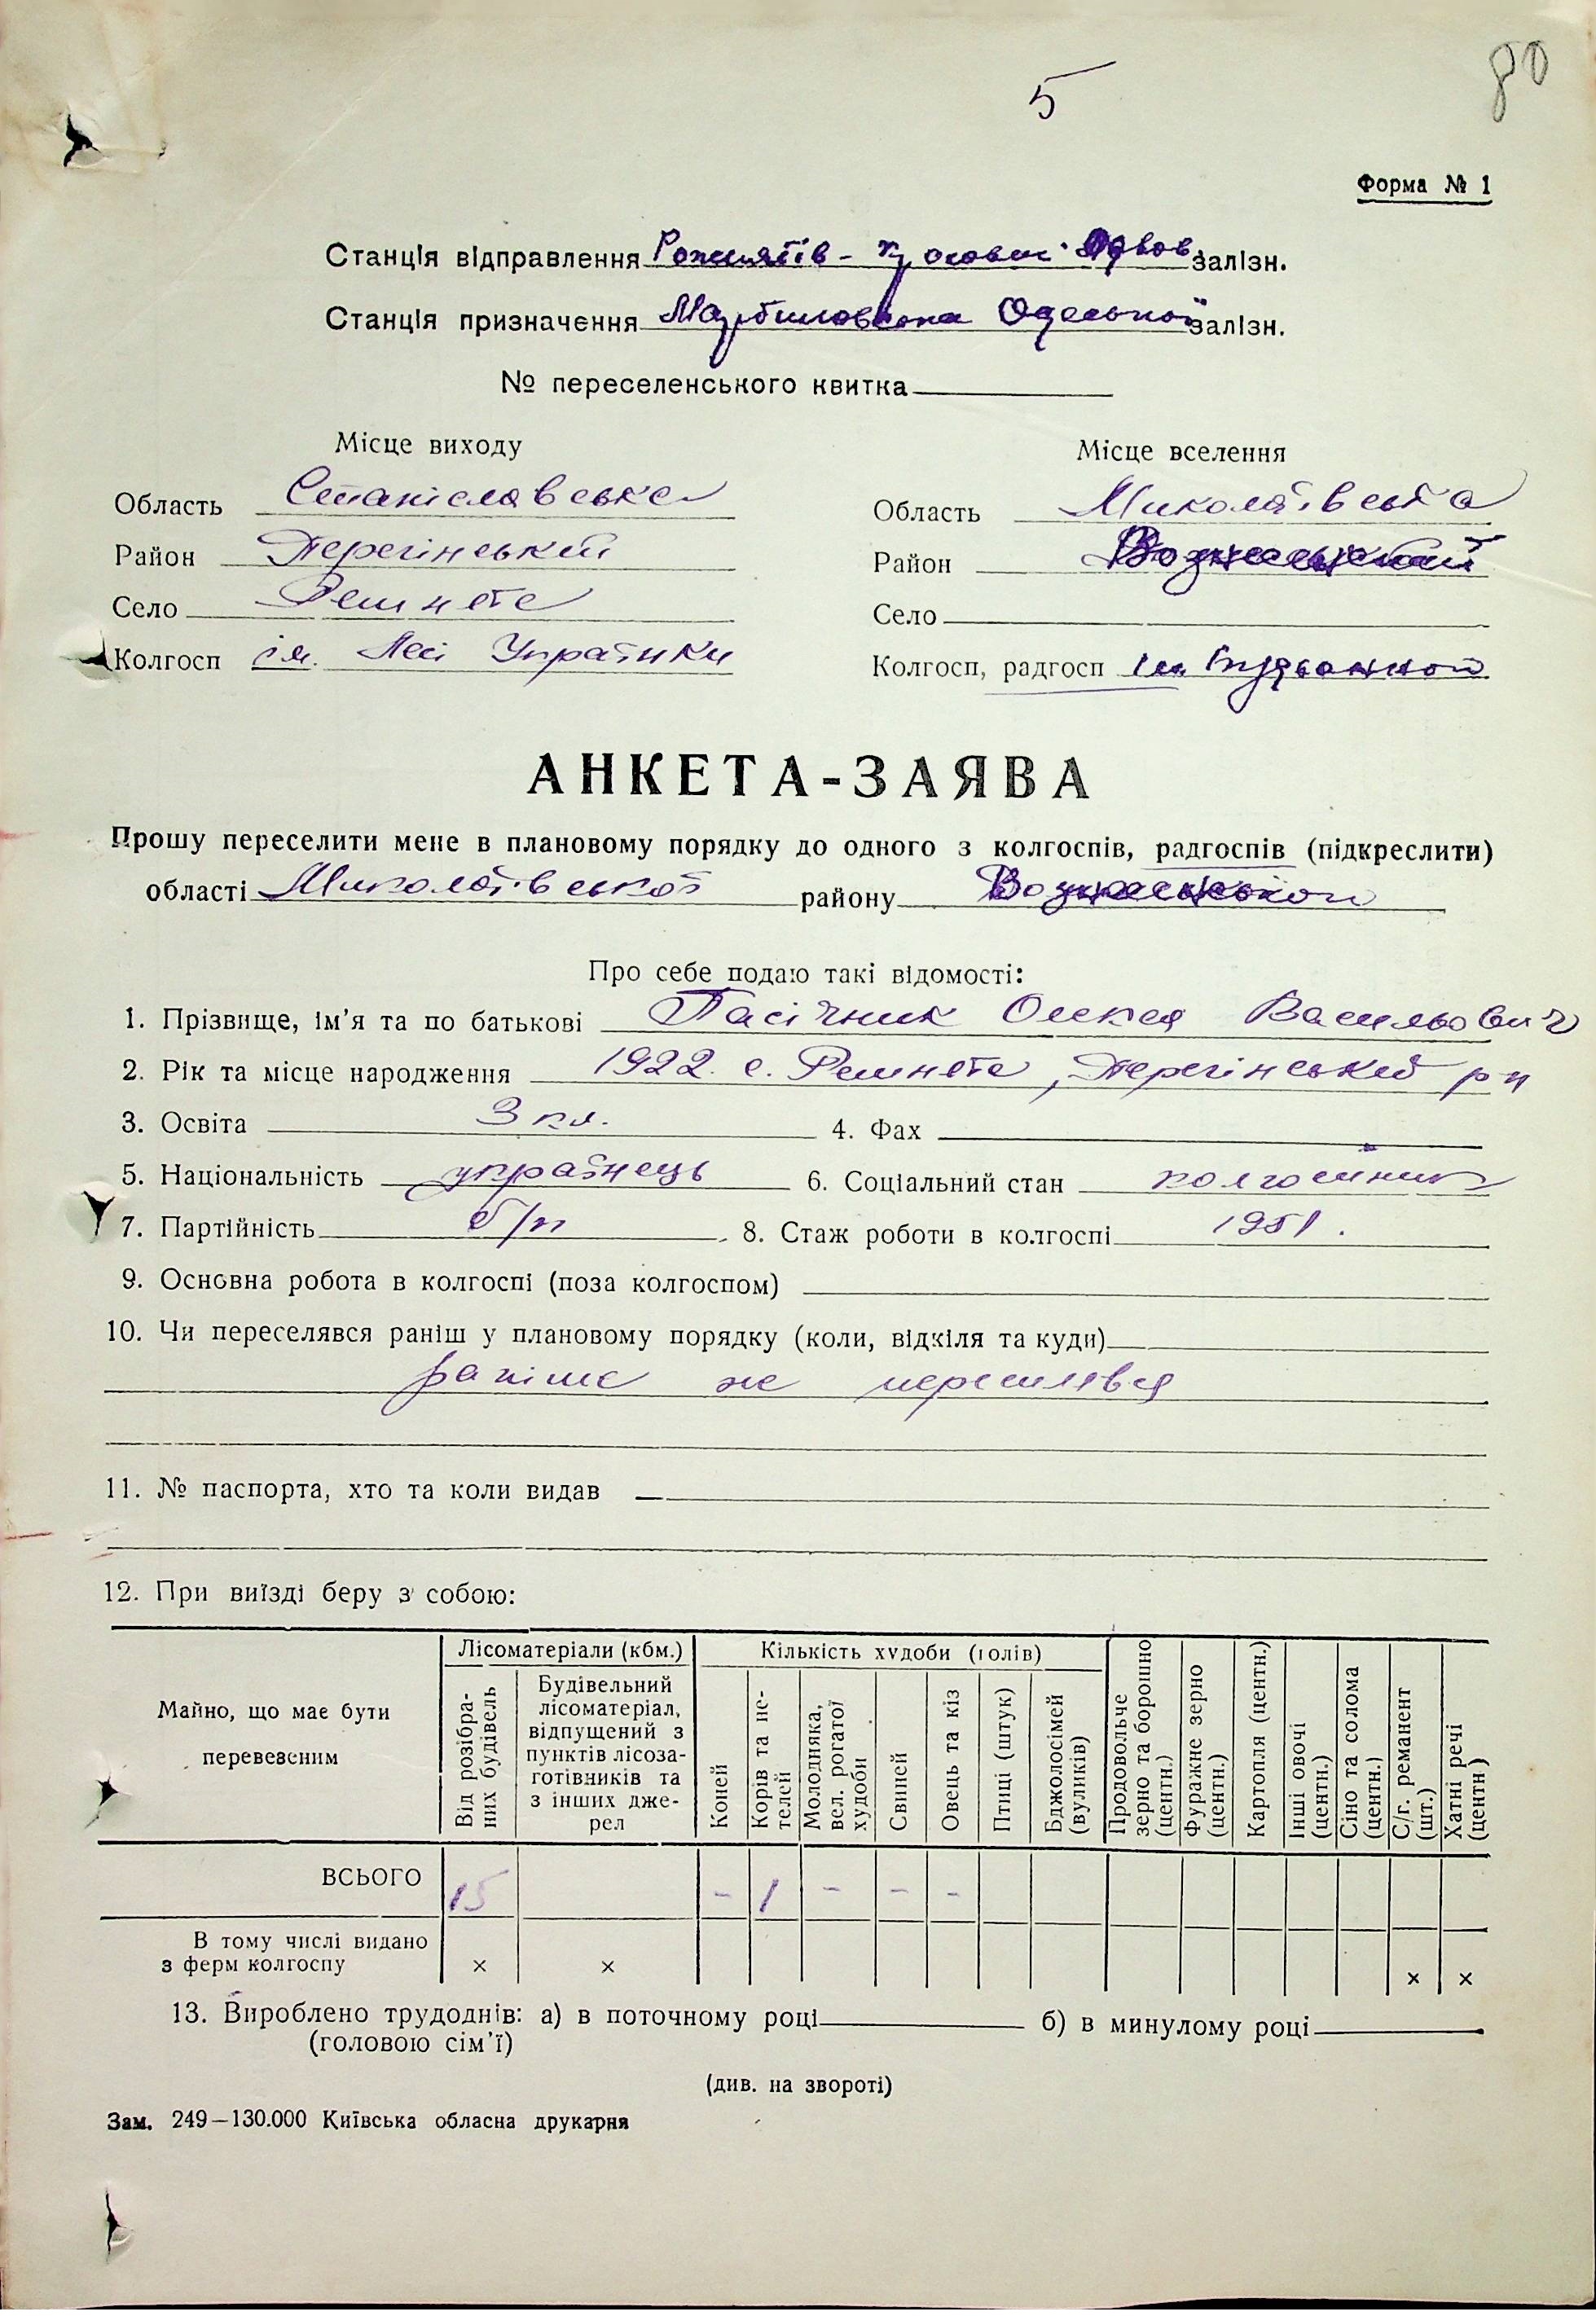 5
80
Форма № 1
Станція відправлення Рожнятів - Кросовичі Львов. залізн.
Станція призначення Мартинівська Одеської залізн.
№ переселенського квитка
Місце виходу
Місце вселення
Область Станіславська
Область Миколаївська
Район Перегінський
Район Вознесенський
Село Решнете
Село
Колгосп ім. Лесі Українки
Колгосп, радгосп ім Будьонного
АНКЕТА-ЗАЯВА
Прошу переселити мене в плановому порядку до одного з колгоспів, радгоспів (підкреслити)
області Миколаївської району Вознесенського
Про себе подаю такі відомості:
1. Прізвище, ім'я та по батькові Пасічник Олекса Васильович
2. Рік та місце народження 1922. с. Решнете, Перегінський р-н
3. Освіта 3 кл. 4. Фах
5. Національність українець 6. Соціальний стан колгоспник
7. Партійність б/п 8. Стаж роботи в колгоспі 1951.
9. Основна робота в колгоспі (поза колгоспом)
10. Чи переселявся раніш у плановому порядку (коли, відкіля та куди)
раніше не переселявся
11. № паспорта, хто та коли видав
12. При виїзді беру з собою:
Майно, що має бути перевезеним
Лісоматеріали (кбм.)
Кількість худоби (голів)
Від розібраних будівель
Будівельний лісоматеріал, відпущений з пунктів лісоза-готівників та з інших дже-рел
Коней
Корів та не-телей
Молодняка, вел. рогатої худоби
Свиней
Овець та кіз
Птиці (штук)
Бджолосімей (вуликів)
Продовольче зерно та борошно (центн.)
Фуражне зерно (центн.)
Картопля (центн.)
Інші овочі (центн.)
Сіно та солома (центн.)
С/г. реманент (шт.)
Хатні речі (центн)
ВСЬОГО 15 - 1 - - -
В тому числі видано
з ферм колгоспу × × × ×
13. Вироблено трудоднів: а) в поточному році б) в минулому році
(головою сім'ї)
(див. на звороті)
Зам. 249—130.000 Київська обласна друкарня